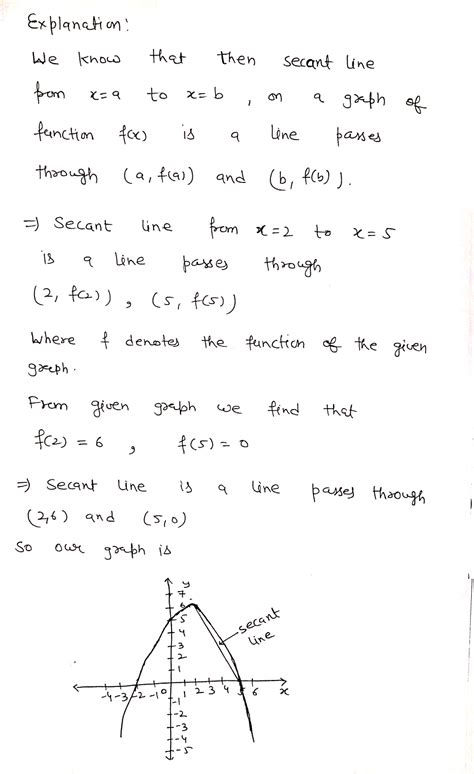 Explanation:
We know that then secant line
from x=a to x=b, on a graph of
function f(x) is a line passes
through (a, f(a)) and (b, f(b)).
⇒ Secant line from x=2 to x=5
is a line passes through
(2, f(2)), (5, f(5))
Where f denotes the function of the given
graph.
From given graph we find that
f(2) = 6, f(5) = 0
⇒ Secant line is a line passes through
(2,6) and (5,0)
So our graph is
y
7
6
5
4
3
2
1
secant
line
-4 -3 -2 -1 0 1 2 3 4 5 6 x
-1
-2
-3
-4
-5